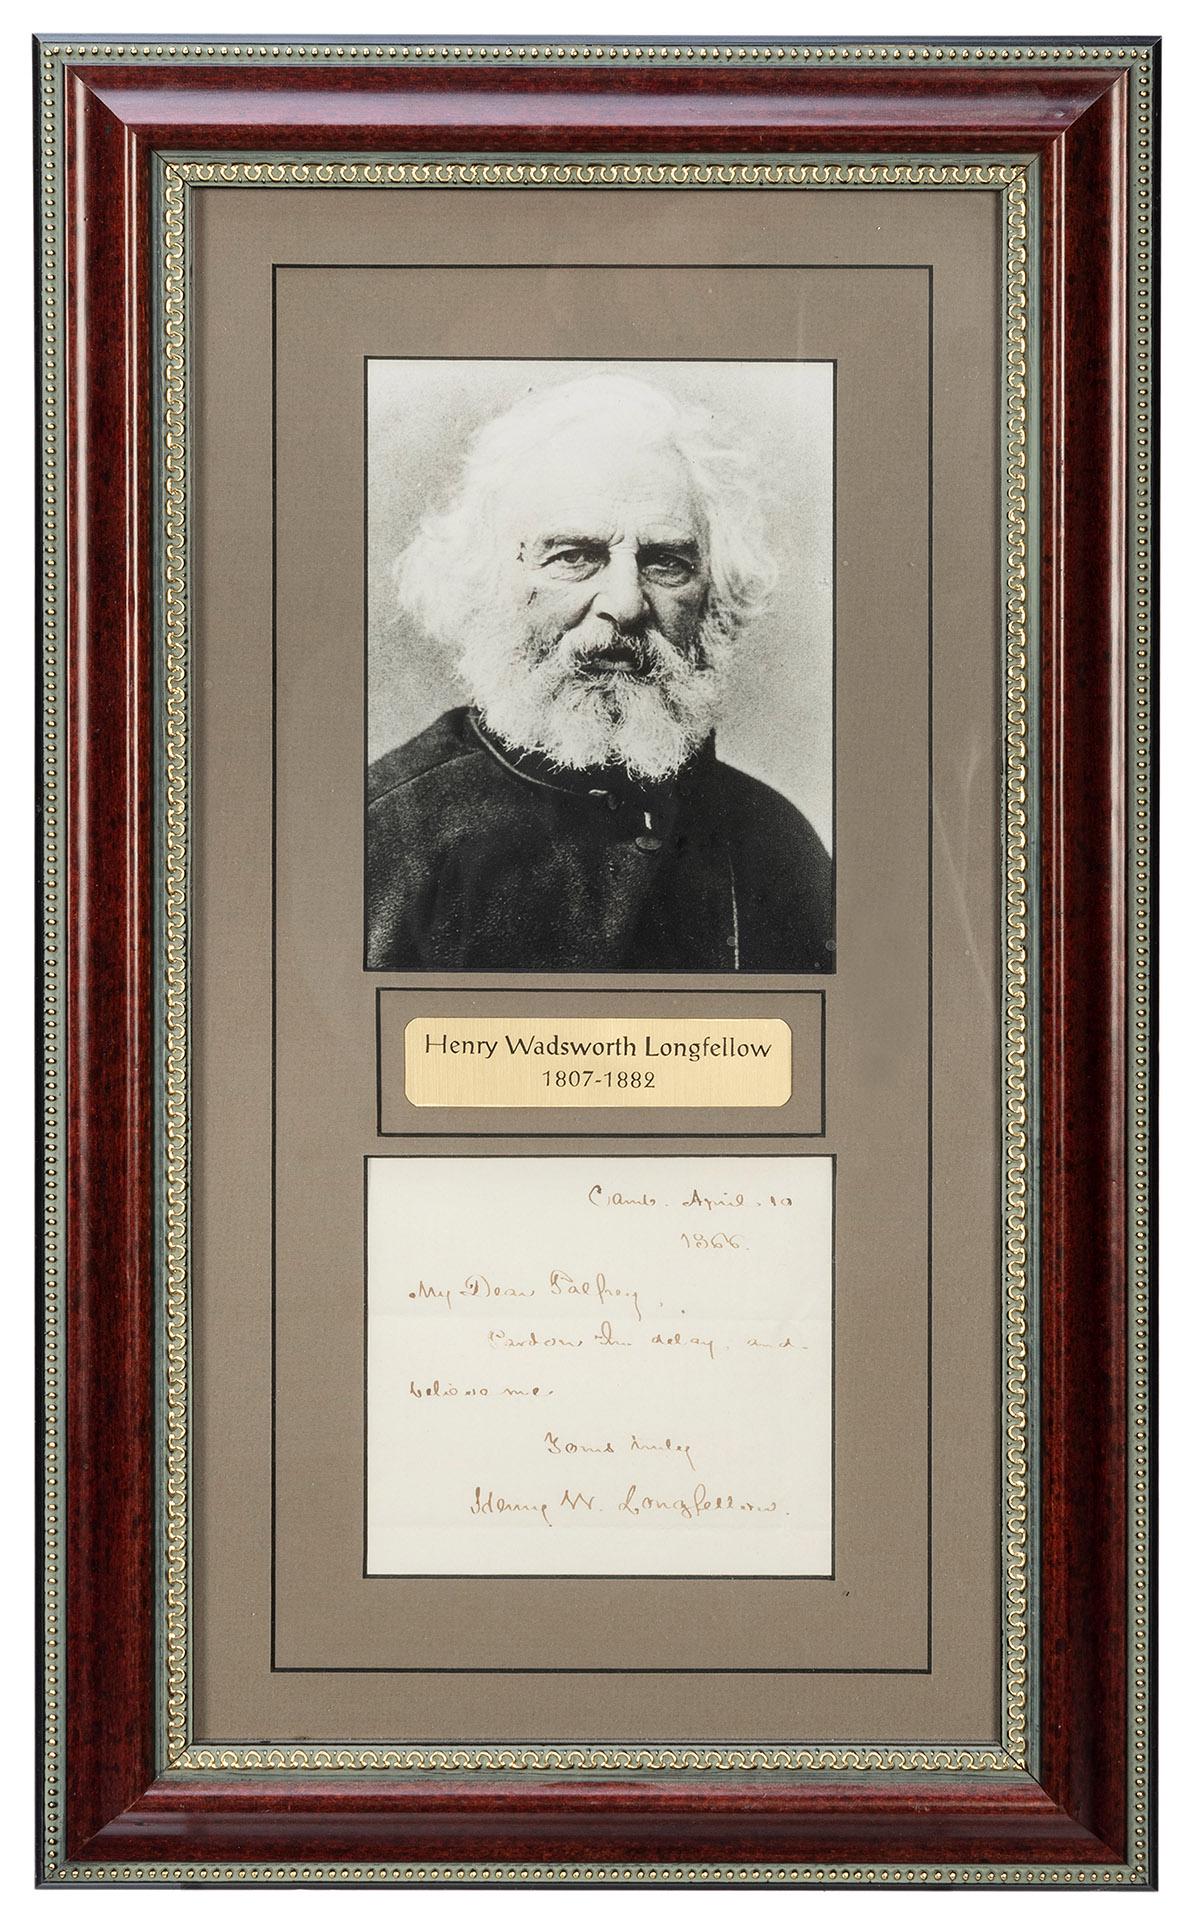 Henry Wadsworth Longfellow
1807-1882
Camb. April. 10
1866.
My Dear Palfrey,
Pardon the delay, and
believe me.
Yours truly
Henry W. Longfellow.